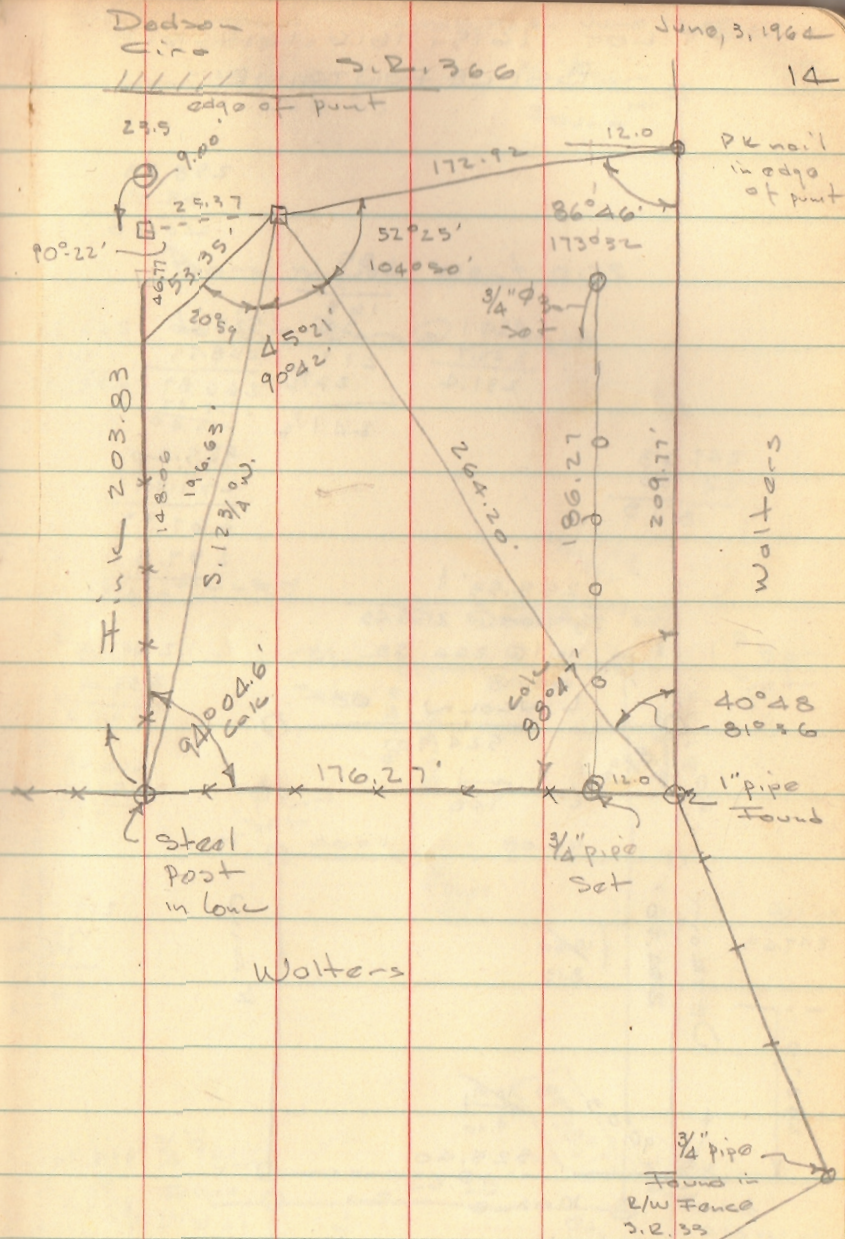 Dodson
Circ
June, 3, 1964
14
S.R. 366
edge of pvmt
23.5
9.00'
12.0
PK nail
in edge
of pvmt
172.92
25.37
86°46'
173°32
90°-22'
52°25'
104°50'
46.77
53.35'
3/4" Φ
Set
20°59
45°21'
90°42'
Fink 203.83
148.06
196.63'
S. 12 3/4° W.
264.20'
186.27
209.77'
Wolters
94°04.6'
Calc
Calc
88°47'
40°48
81°36
176.27'
12.0
1" pipe
Found
Steel
Post
in Conc
3/4" pipe
Set
Wolters
3/4" pipe
Found in
R/W Fence
S.R. 33